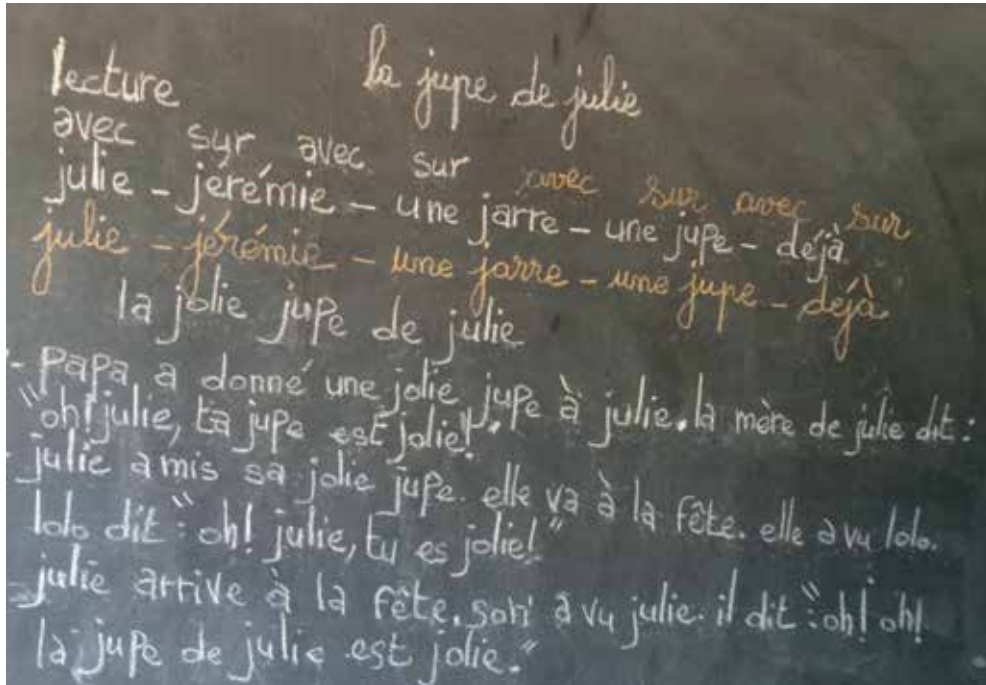 lecture la jupe de julie
avec sur avec sur avec sur avec sur
julie - jérémie - une jarre - une jupe - déjà
julie - jérémie - une jarre - une jupe - déjà
la jolie jupe de julie
- papa a donné une jolie jupe à julie. la mère de julie dit :
"oh! julie, ta jupe est jolie!"
- julie a mis sa jolie jupe. elle va à la fête. elle a vu lolo.
lolo dit : "oh! julie, tu es jolie!"
- julie arrive à la fête. son' a vu julie. il dit : "oh! oh!
la jupe de julie est jolie."